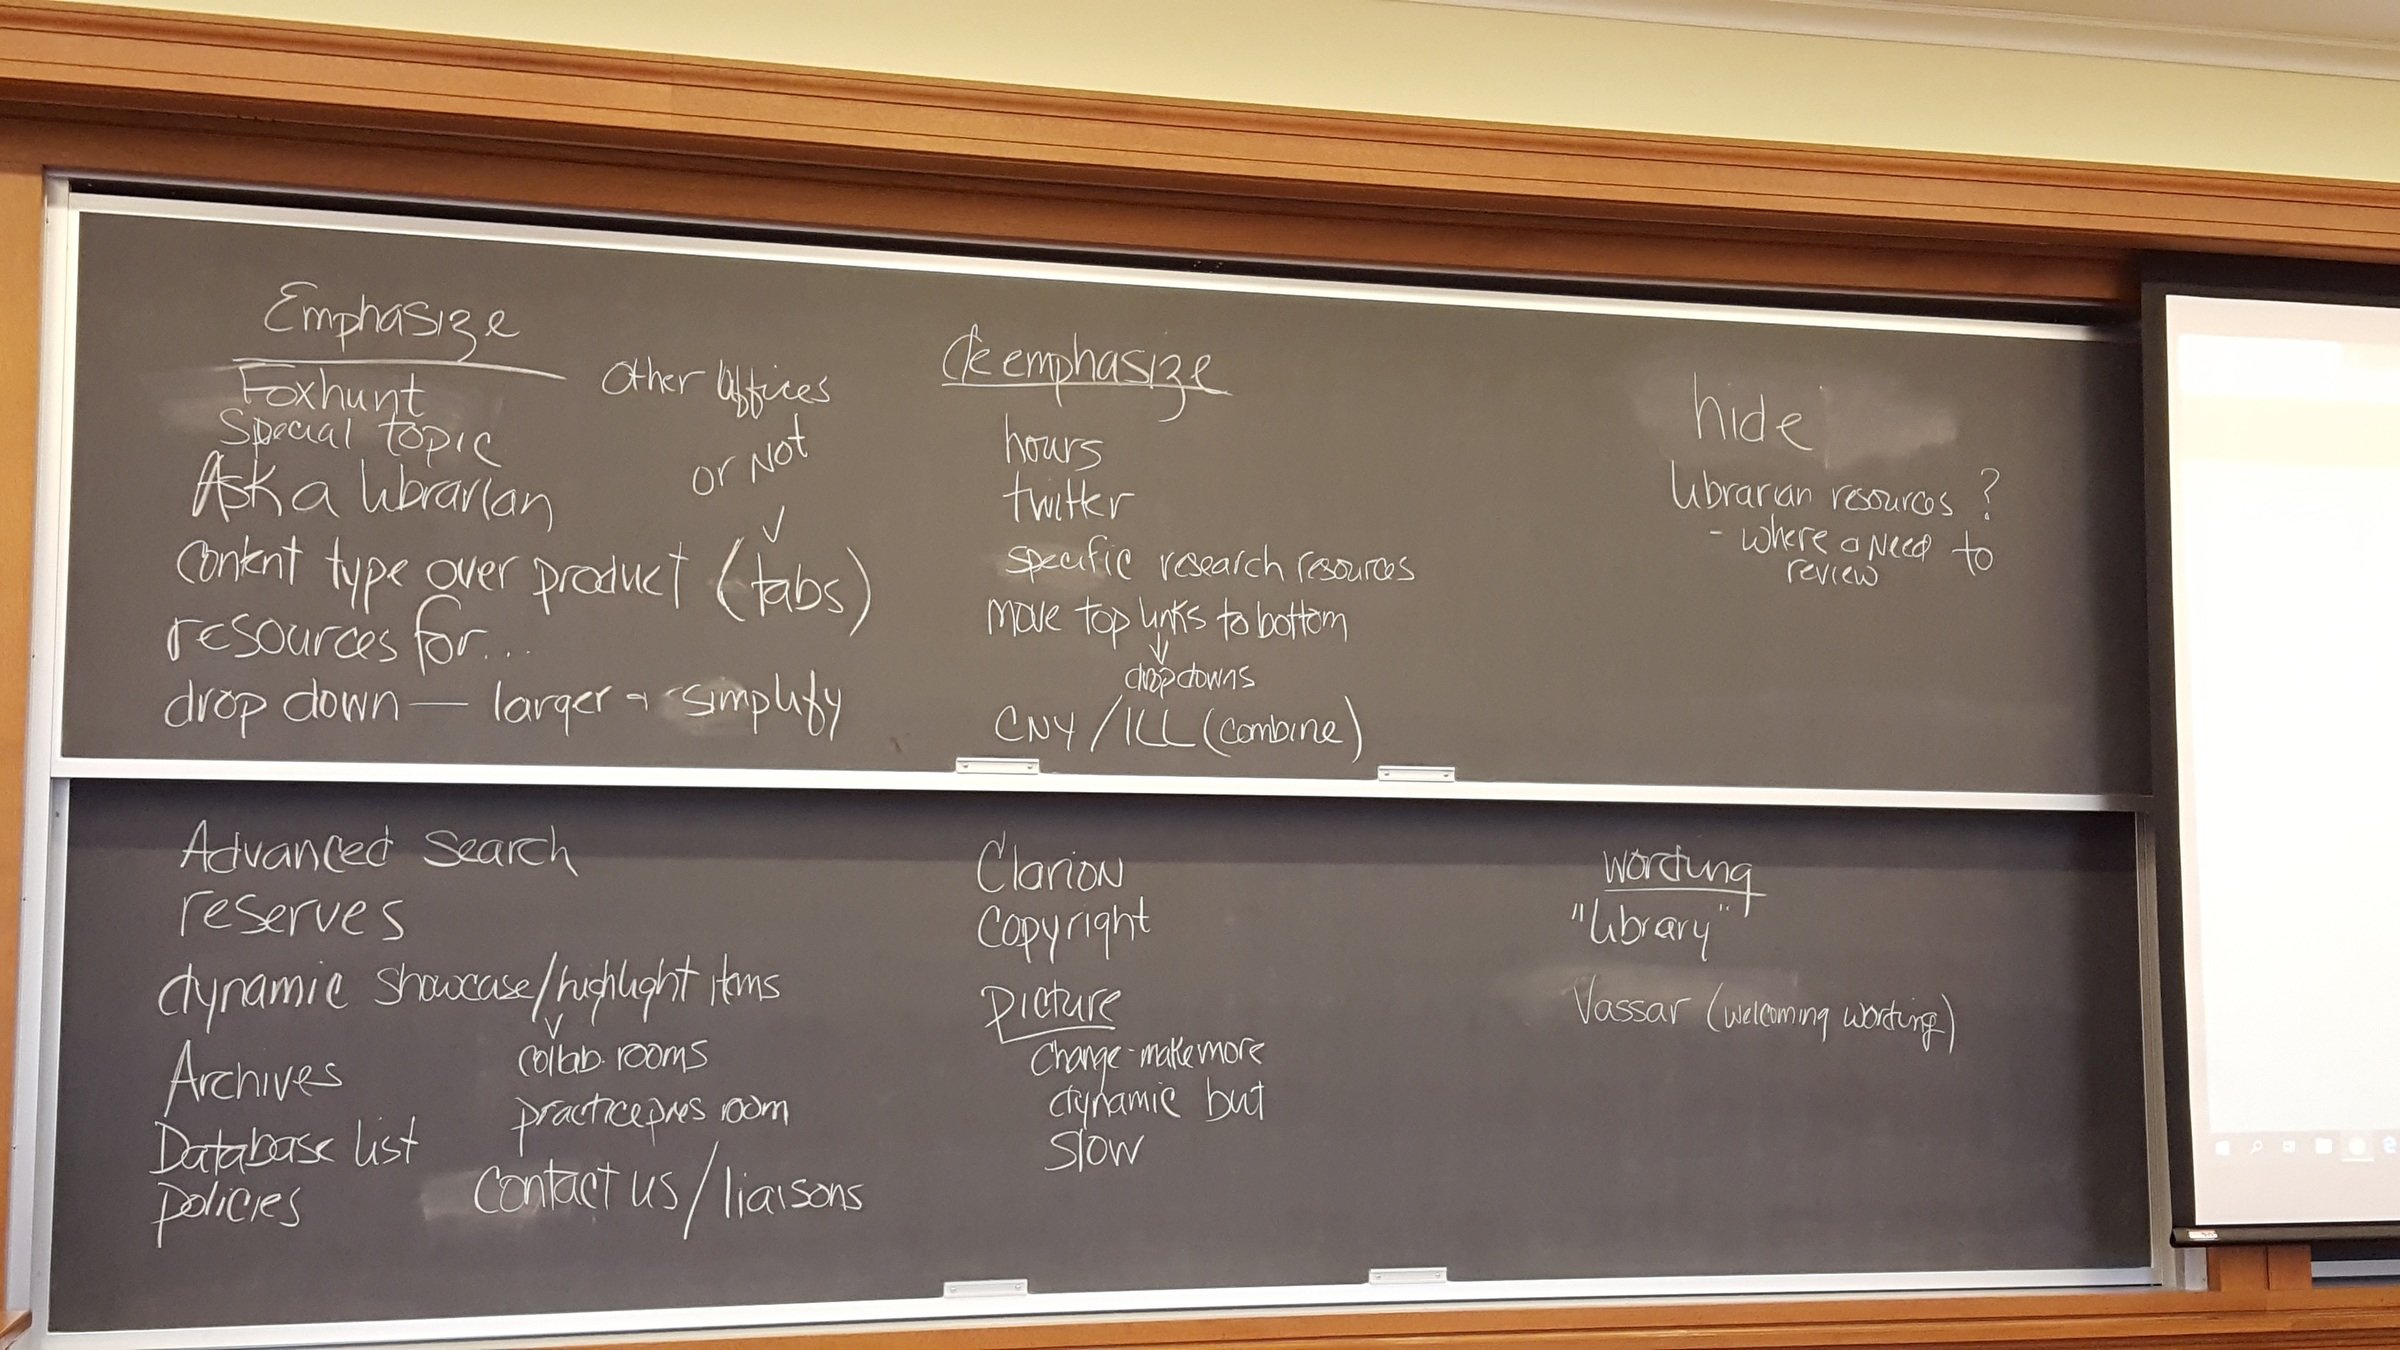 Emphasize
Foxhunt
Special topic
Ask a librarian
Other Offices
or Not
content type over product (tabs)
resources for...
drop down — larger + simplify
de emphasize
hours
twitter
specific research resources
move top links to bottom
dropdowns
CNY / ILL (combine)
hide
librarian resources ?
- where a need to
review
Advanced Search
reserves
dynamic showcase/highlight items
collab. rooms
practice pres room
Archives
Database list
policies
Contact us / liaisons
Clarion
Copyright
Picture
Change - make more
dynamic but
slow
wording
"library"
Vassar (welcoming wording)